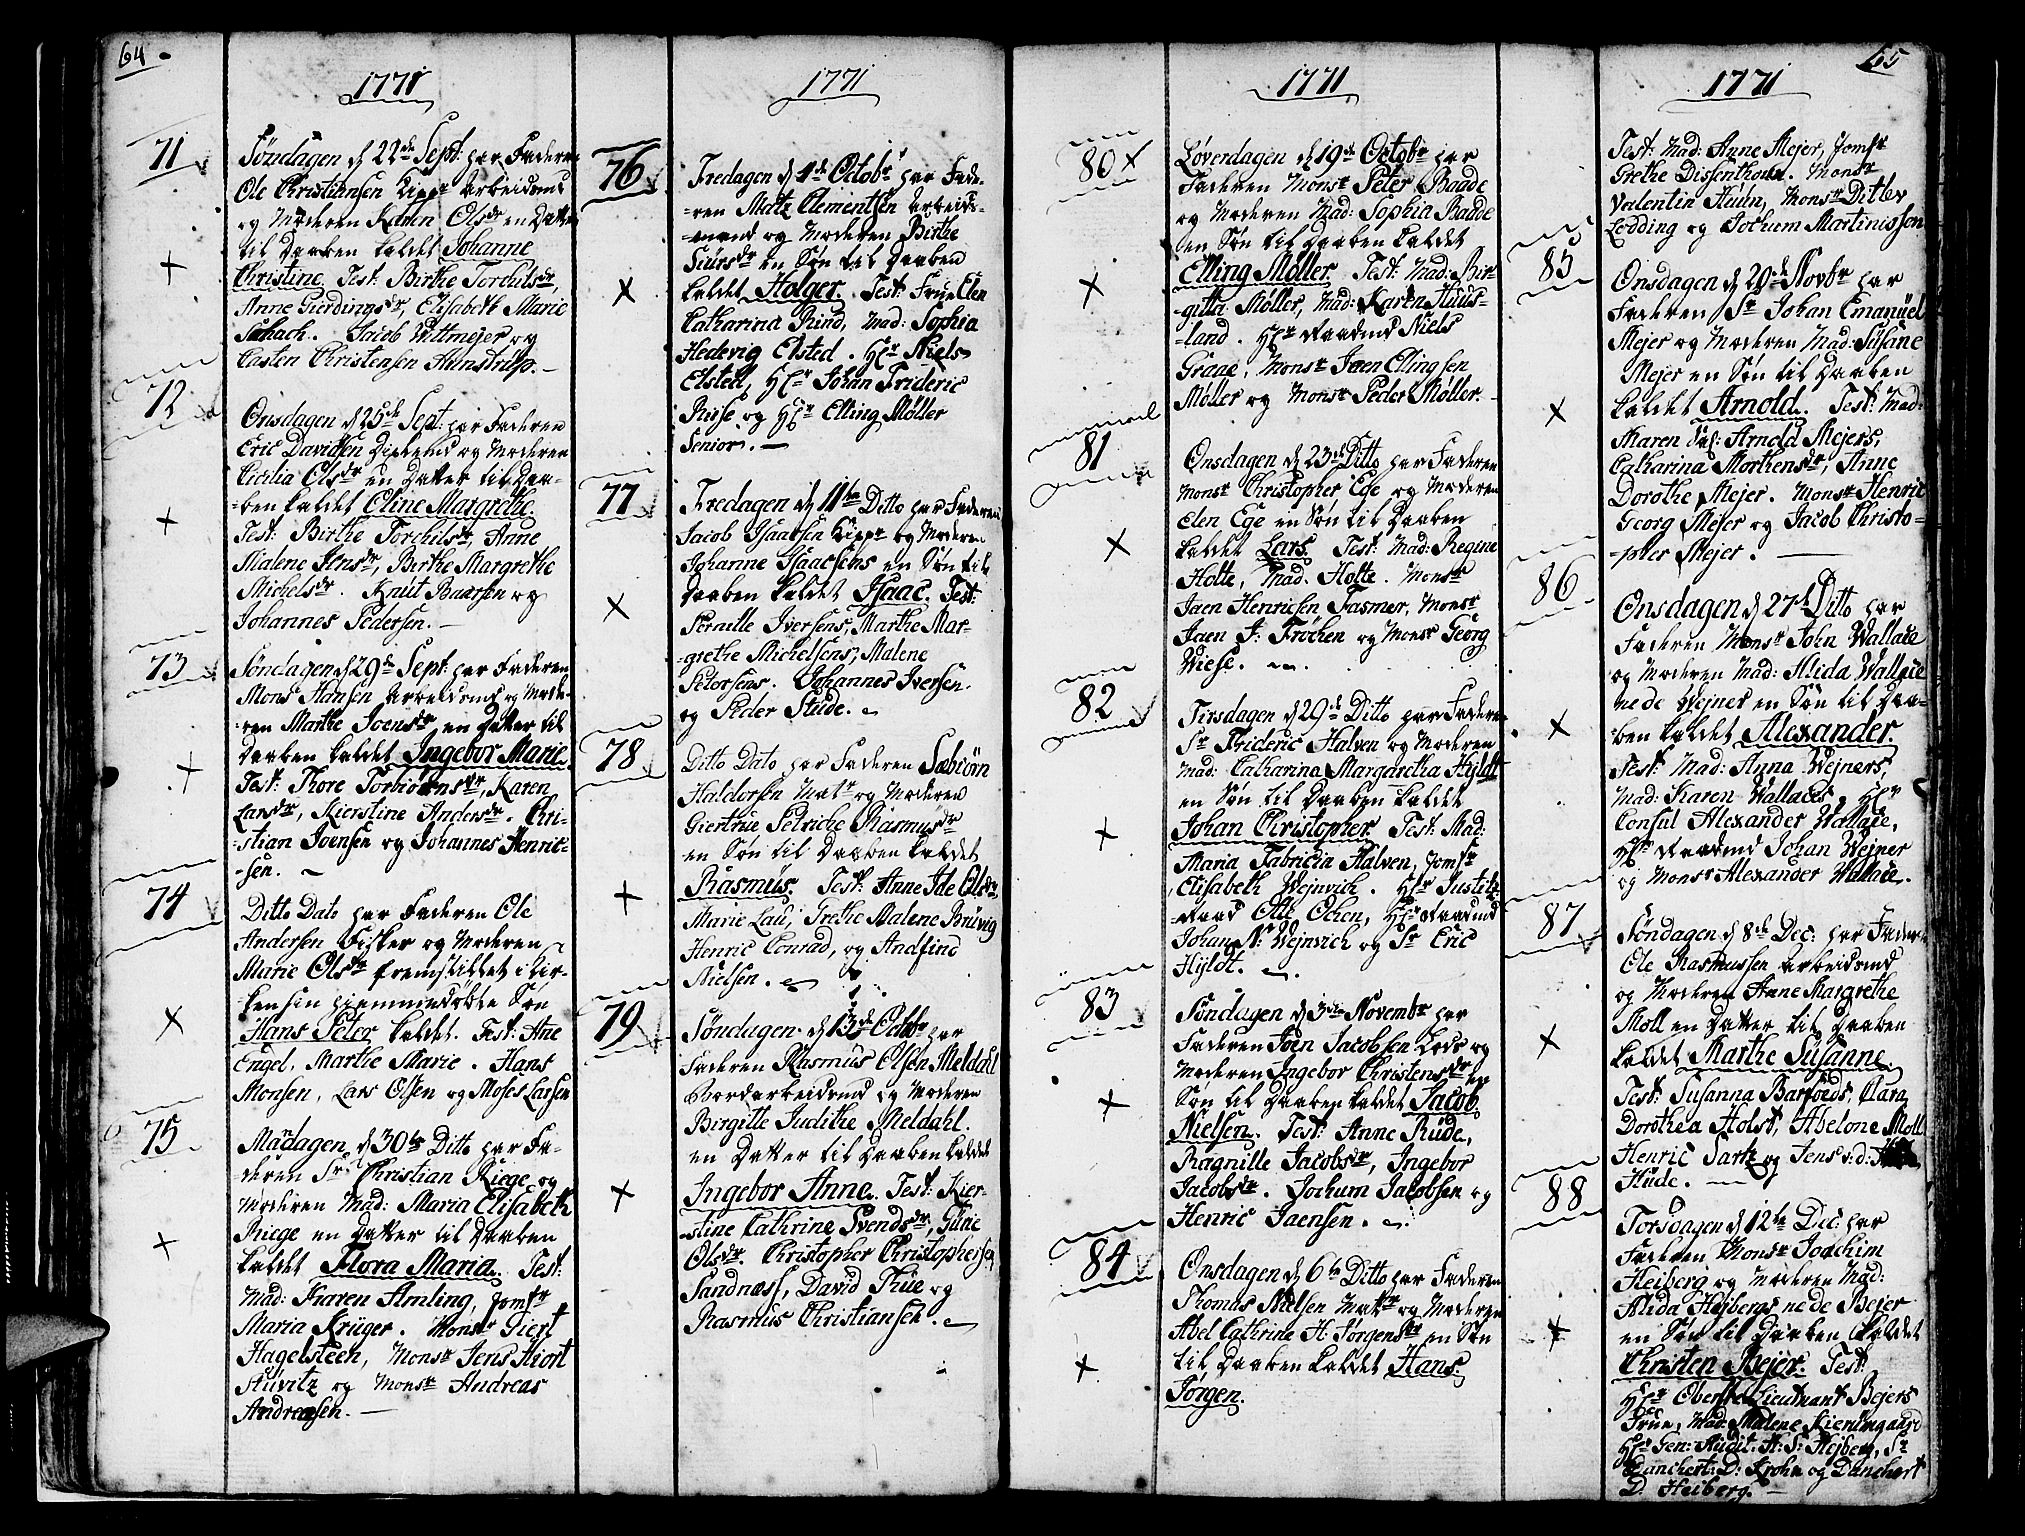 64
1771
71
Søndagen d 22de Sept: har Faderen
Ole Christiansen Kipp Arbeidsmd
og Moderen Karen Olsdr en Datter
til Daaben kaldet Johanne
Christine. Test: Birthe Torchilsdr,
Anne Gierdingsdr, Elisabeth Marie
Schach. Jacob Wittmejer og
Casten Christensen Hunstrup.
72
Onsdagen d 25de Sept: har Faderen
Eric Davidsen og Moderen
Cicilia Olsdr en Datter til Daa-
-ben kaldet Eline Margrethe.
Test: Birthe Torchilsdr, Anne
Malene Arnsdr, Birthe Margrethe
Michelsdr. Knut Baarsen og
Johannes Pedersen.
73
Søndagen d 29de Sept: har Faderen
Mons Hansen Arbeidsmd og Mode-
-ren Marthe Joensdr en Datter til
Daaben kaldet Ingebor Marie.
Test: Thore Torbiörnsdr, Karen
Larsdr, Kierstine Andersdr. Chri-
-stian Joensen og Johannes Henric-
-sen.
74
Ditto Dato har Faderen Ole
Andersen Fisker og Moderen
Marie Olsdr fremstillet i Kir-
-ken sin hjemmedøbte Søn
Hans Peter kaldet. Test: Ane
Engel, Marthe Marie. Hans
Monsen, Lars Olsen og Moses Larsen
75
Mandagen d 30te Ditto har Fa-
deren Sr Christian Riege og
Moderen Mad: Maria Elisabeth
Riege en Datter til Daaben
kaldet Flora Maria. Test:
Mad: Karen Amling, Jomfr
Maria Krüger. Monsr Giert
Hagelsteen, Monsr Jens Hiort
Huvitz og Monsr Andreas
Andreasen.
1771
76
Fredagen d 4de Octobr har Fade-
-ren Matz Clementsen Arbeids-
-mand og Moderen Birthe
Siursdr en Søn til Daaben
kaldet Holger. Test: Frue Elen
Catharina Rind, Mad: Sophia
Hedevig Elsted. Hr Niels
Elsted, Hr Johan Frideric
Ruse og Hr Elling Møller
Senior.
77
Fredagen d 11te Ditto har Faderen
Jacob Isaacsen Kipp og Moderen
Johanne Isaacsens en Søn til
Daaben kaldet Isaac. Test:
Pernille Iversens, Marthe Mar-
-grethe Michelsens, Malene
Petersens. Johannes Iversen.
og Peder Stude.
78
Ditto Dato har Faderen Sæbiörn
Haldorsen Matr og Moderen
Giertrue Petriche Rasmusdr
en Søn til Daaben kaldet
Rasmus. Test: Anne Ide Olsdr,
Marie Lau, Grethe Malene Brüvig
Henric Conrad, og Andfind
Nielsen.
79
Søndagen d 13de Octbr har
Faderen Rasmus Olsen Meldahl
Bordarbeidsmd og Moderen
Birgitte Judithe Meldahl.
en Datter til Daaben kaldet
Ingebor Anne. Test: Kier-
-stine Cathrine Svendsdr, Gune
Olsdr. Christopher Christophersen
Sandness, David Thue og
Rasmus Christiansen.
1771
80
Løverdagen d 19de Octobr har
Faderen Monsr Peter Baade
og Moderen Mad: Sophia Baade
en Søn til Daaben kaldet
Elling Møller. Test: Mad: Bir-
-gitta Møller, Mad: Karen Huus-
-land. Hr Raadmd Niels
Graae, Monsr Joen Ellingsen
Møller og Monsr Peder Møller.
81
Onsdagen d 23de Ditto har Faderen
Monsr Christopher Ege og Moderen
Elen Ege en Søn til Daaben
kaldet Lars. Test: Mad: Regine
Holte, Mad. Holte. Monsr
Jaen Henricsen Fasmer, Monsr
Jaen J: Frochen og Monsr Georg
Wiese.
82
Tirsdagen d 29de Ditto har Faderen
Sr Frideric Halven og Moderen
Mad: Catharina Margaretha Hÿldt
en Søn til Daaben kaldet
Johan Christopher. Test: Mad:
Maria Fabricia Halven, Jomfr
Elisabeth Wejnvich. Hr Justitz-
-Raad Olle Ochen, Hr Raadmd
Johan N: Wejnvich og Sr Eric
Hÿldt.
83
Søndagen d 3die Novembr har
Faderen Joen Jacobsen Lods og
Moderen Ingebor Christensdr en
Søn til Daaben kaldet Jacob
Nielsen. Test: Anne Rude,
Ragnille Jacobsdr, Ingebor
Jacobsdr. Jochum Jacobsen og
Henric Jaensen.
84
Onsdagen d 6te Ditto har Faderen
Thomas Nielsen Matr og Moderen
Abel Cathrine H: Jørgensdr en Søn
til Daaben kaldet Hans
Jörgen.
65
1771
Test: Mad: Anne Mejer, Jomfr
Grethe Dissenthon. Monsr
Valentin Huun, Monsr Ditlev
Lodding og Jochum Martinissen
85
Onsdagen d 20de Novbr har
Faderen Sr Johan Emanüel
Mejer og Moderen Mad: Susane
Mejer en Søn til Daaben
kaldet Arnold. Test: Mad:
Maren Sal: Arnold Mejers,
Catharina Morthensdr, Anne
Dorothe Mejer. Monsr Henric
Georg Mejer og Jacob Christo-
-pher Mejer.
86
Onsdagen d 27de Ditto har
Faderen Monsr John Wallace
og Moderen Mad: Alida Wallace
nede Wejner en Søn til Daa-
-ben kaldet Alexander.
Test: Mad: Anna Wejners,
Mad: Karen Wallaces. Hr
Consul Alexander Wallace,
Hr Raadmd Johan Wejner
og Monsr Alexander Wallace.
87
Søndagen d 8de Dec: har Faderen
Ole Rasmussen Arbeidsmd
og Moderen Anne Margrethe
Moll en Datter til Daaben
kaldet Marthe Susanne
Test: Susanna Barfoeds, Clara
Dorothea Holst, Abelone Moll
Henric Sartz og Jens v: d:
Hude.
88
Torsdagen d 12te Dec: har
Faderen Monsr Joachim
Heiberg og Moderen Mad:
Alida Hejbergs nede Bejer
en Søn til Daaben kaldet
Christen Bejer. Test:
Hr Oberste Lieutnant Bejers
Frue, Mad: Malene Kierulngaard
Hr Gen: Audit: A: S: Hejberg, Sr
Danchert: D: Krohn og Danchert
D: Heiberg.